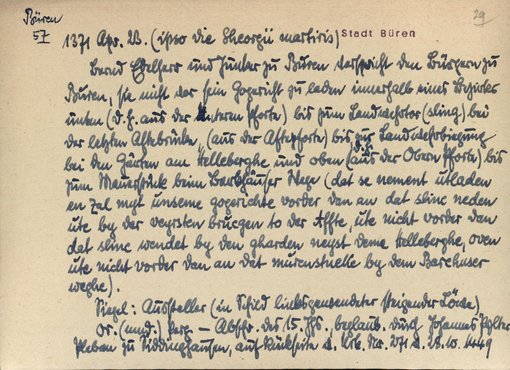 Büren 29
57 1371 Apr. 23. (ipso die Gheorgii martiris) Stadt Büren
Bernd Edelherr und Junker zu Buren verspricht den Bürgern zu
Buren, sie nicht vor sein Gogericht zu laden innerhalb eines Bezirkes
unten (d.h. aus der Unteren Pforte) bis zum Landwehrtor (sling) bei
der letzten Aftebrücke, (aus der Aftepforte) bis zur Landwehrbiegung
bei den Gärten am Helleberghe und oben (aus der Obern Pforte) bis
zum Mauerstück beim Barkhäuser Wege (dat se nement utladen
en zal myt unseme gogerichte vorder dan an dat slinc neden
ute by der veyrsten brucgen to der Affte, ute nicht vorder dan
dat slinc wendet by den gharden neyst deme Helleberghe, oven
ute nicht vorder dan an dat murenstucke by dem Barchuser
weghe).
Siegel: Aussteller (in Schild linksgewendeter steigender Löwe)
Or. (mnd.) Perg. – Abschr. des 15. Jhs., beglaub. durch Johannes
Pleban zu Siddinghausen, auf Rückseite d. Urk. Nr. 271 d. 28.10.1449